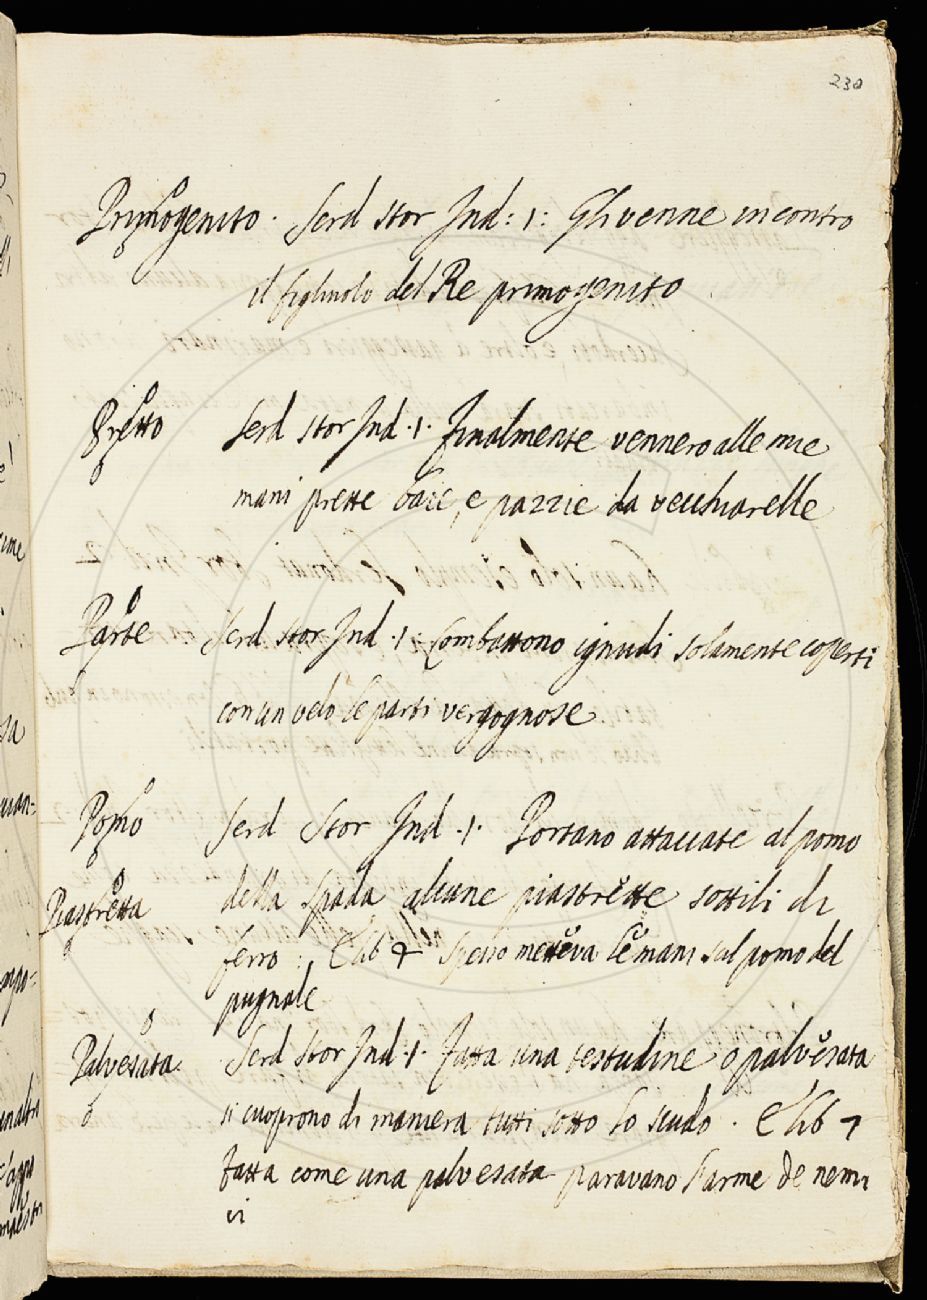 230
Primogenito. Serd stor Ind: 1: Gli venne incontro
il figliuolo del Re primogenito
Pretto Serd stor Ind. 1. Finalmente vennero alle mie
mani prette baie, e pazzie da vecchiarelle
Parte Serd stor Ind. 1. Combattono ignudi solamente coperti
con un velo le parti vergognose
Pomo Serd Stor Ind. 1. Portano attaccate al pomo
Piastretta della spada alcune piastrette sottili di
ferro: E lib 4 spesso metteva le mani sul pomo del
pugnale
Palvesata Serd stor Ind. 1. fatta una testudine o palvesata
si cuoprono di maniera tutti sotto lo scudo. E lib 7
fatta come una palvesata paravano l'arme de nemi
ci